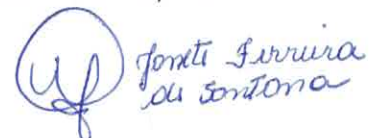 Jonete Ferreira
de Santana